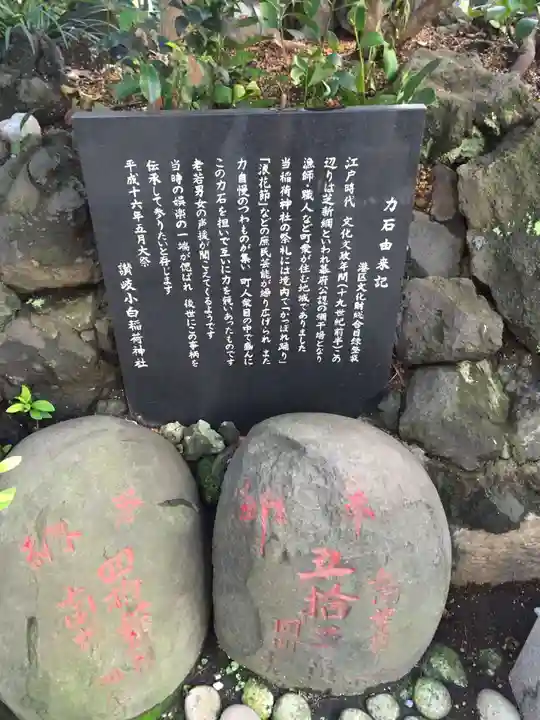 力石由来記
港区文化財総合目録登載
江戸時代 文化文政年間(十九世紀前半)この
辺りは芝新網といわれ幕府公認の網干場となり
漁師・職人など町衆が住む地域でありました
当稲荷神社の祭礼には境内で「かっぽれ踊り」
「浪花節」などの庶民芸能が繰り広げられ また
力自慢のつわものが集い 町人衆目の中で臨んに
この力石を担いで互いに力を競いあったものです
老若男女の声援が聞こえてくるようです
当時の娯楽の一端が偲ばれ 後世にこの事柄を
伝承して参りたいと存じます
平成十六年五月大祭
讃岐小白稲荷神社
奉
納
奉
納
五拾